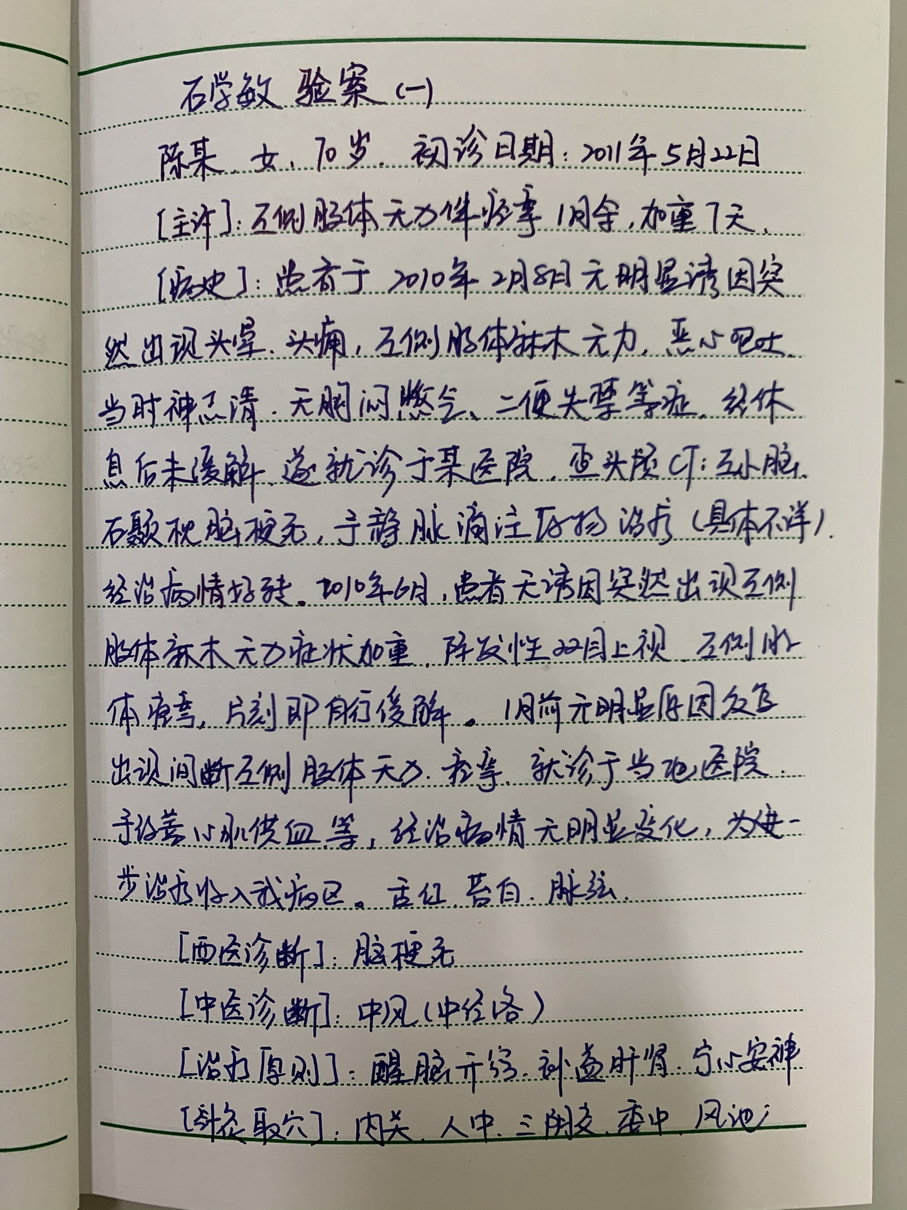 石学敏 验案 (一)
陈某、女、70岁. 初诊日期: 2011年5月22日
[主诉]: 左侧肢体无力伴痉挛1月余,加重7天.
[病史]: 患者于2010年2月8日无明显诱因突
然出现头晕. 头痛, 左侧肢体麻木无力, 恶心呕吐.
当时神志清. 无胸闷憋气、二便失禁等症. 经休
息后未缓解. 遂就诊于某医院, 查头颅CT: 左小脑、
右颞枕脑梗死, 予静脉滴注药物治疗(具体不详).
经治病情好转。2010年6月, 患者无诱因突然出现左侧
肢体麻木无力症状加重, 阵发性双目上视、左侧肢
体痉挛, 片刻即自行缓解。1月前无明显原因反复
出现间断左侧肢体无力. 痉挛. 就诊于当地医院.
予改善心肌供血等, 经治病情无明显变化, 为进一
步治疗收入我病区。舌红. 苔白. 脉弦.
[西医诊断]: 脑梗死
[中医诊断]: 中风(中经络)
[治疗原则]: 醒脑开窍. 补益肝肾. 宁心安神
[针灸取穴]: 内关、人中、三阴交、委中、风池;